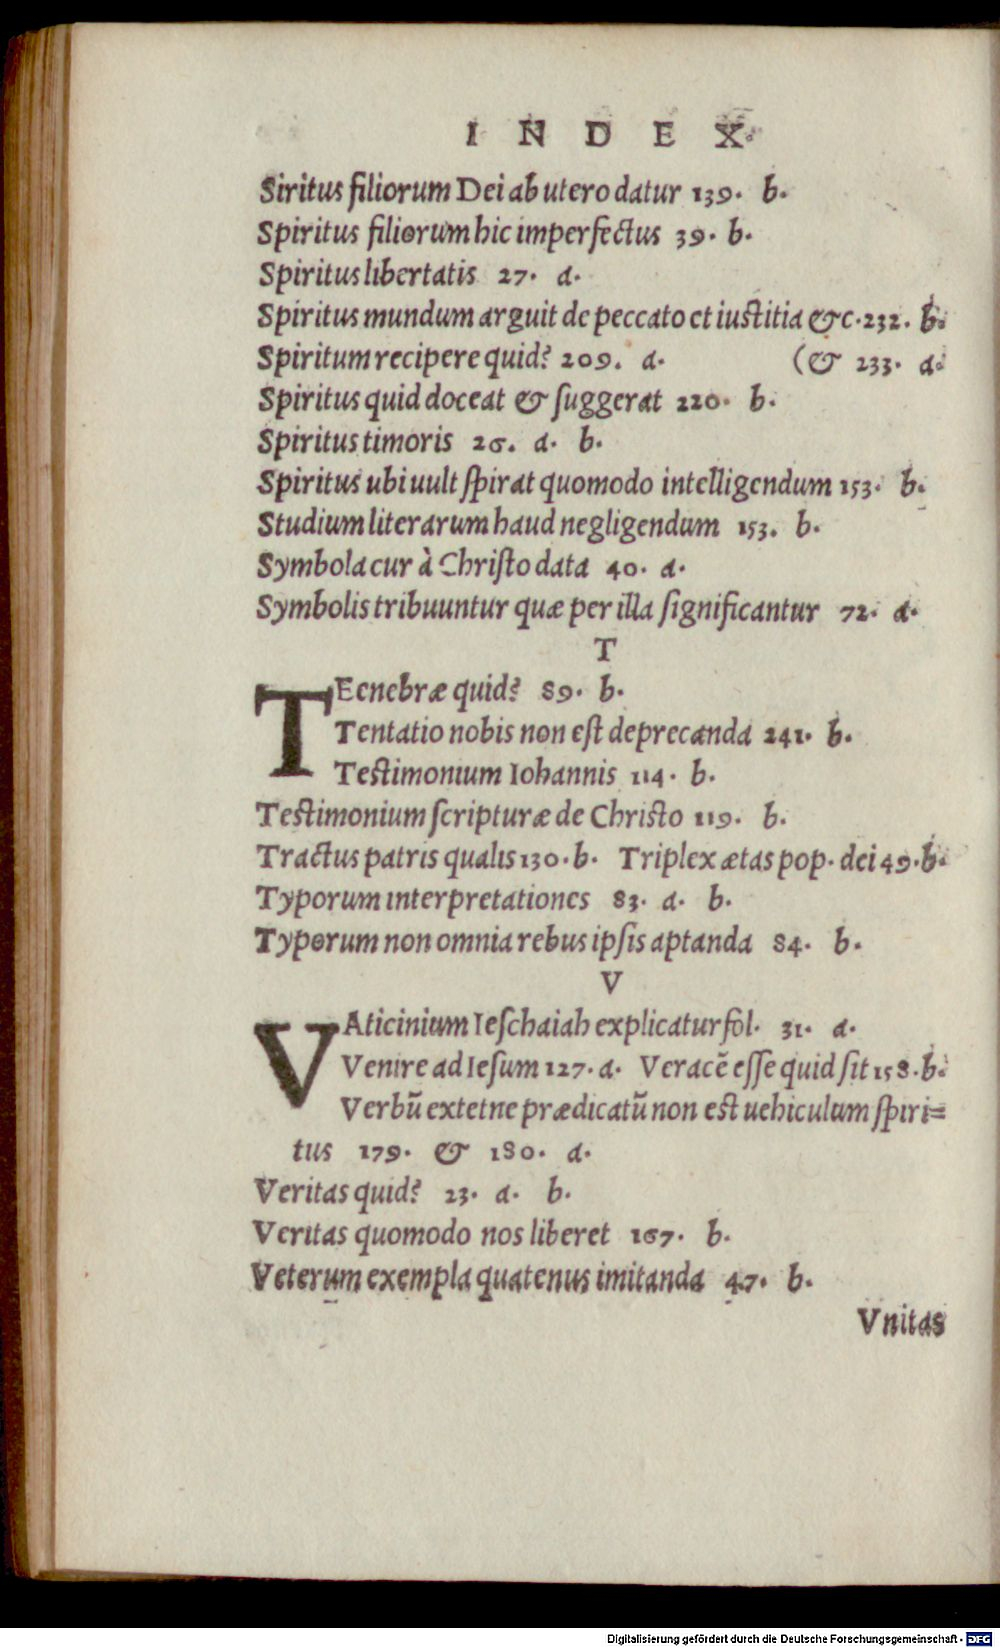 I N D E X.
Siritus filiorum Dei ab utero datur 139. b.
Spiritus filiorum hic imperfectus 39. b.
Spiritus libertatis 27. a.
Spiritus mundum arguit de peccato et iustitia &c. 232. b.
Spiritum recipere quid? 209. a. (& 233. a.
Spiritus quid doceat & ſuggerat 220. b.
Spiritus timoris 26. a. b.
Spiritus ubi uult ſpirat quomodo intelligendum 153. b.
Studium literarum haud negligendum 153. b.
Symbola cur à Chriſto data 40. a.
Symbolis tribuuntur quæ per illa ſignificantur 72. a.
T
TEenebræ quid? 89. b.
Tentatio nobis non eſt deprecanda 241. b.
Testimonium Iohannis 114. b.
Testimonium ſcripturæ de Christo 119. b.
Tractus patris qualis 130. b. Triplex ætas pop. dei 49. b.
Typorum interpretationes 83. a. b.
Typorum non omnia rebus ipſis aptanda 84. b.
V
VAticinium Ieſchaiah explicatur fol. 31. a.
Venire ad Ieſum 127. a. Veracē eſſe quid ſit 158. b.
Verbũ extetne prædicatũ non est uehiculum ſpiri=
tus 179. & 180. a.
Veritas quid? 23. a. b.
Veritas quomodo nos liberet 167. b.
Veterum exempla quatenus imitanda 47. b.
Vnitas
Digitalisierung gefördert durch die Deutsche Forschungsgemeinschaft - DFG